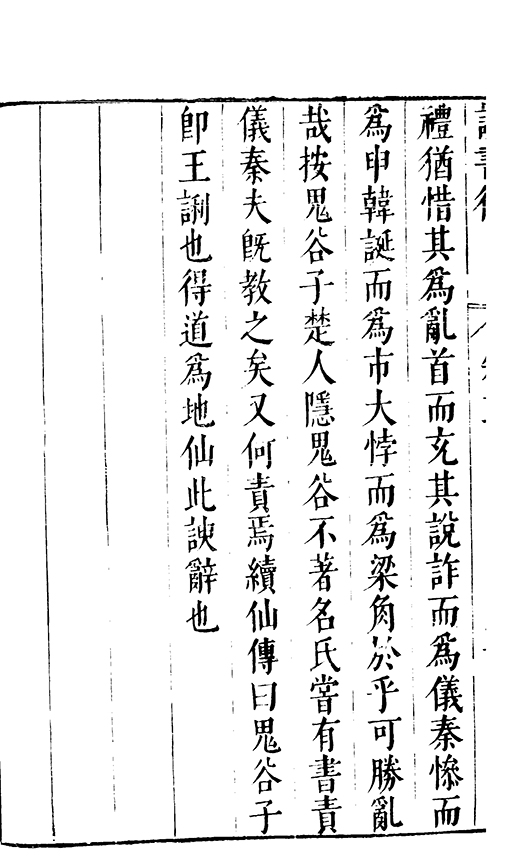 讀書後
禮猶惜其爲亂首而充其說詐而爲儀秦慘而
爲申韓誕而爲市大悖而爲梁角於乎可勝亂
哉按鬼谷子楚人隱鬼谷不著名氏嘗有書責
儀秦夫旣教之矣又何責焉續仙傳曰鬼谷子
卽王誗也得道爲地仙此諛辭也